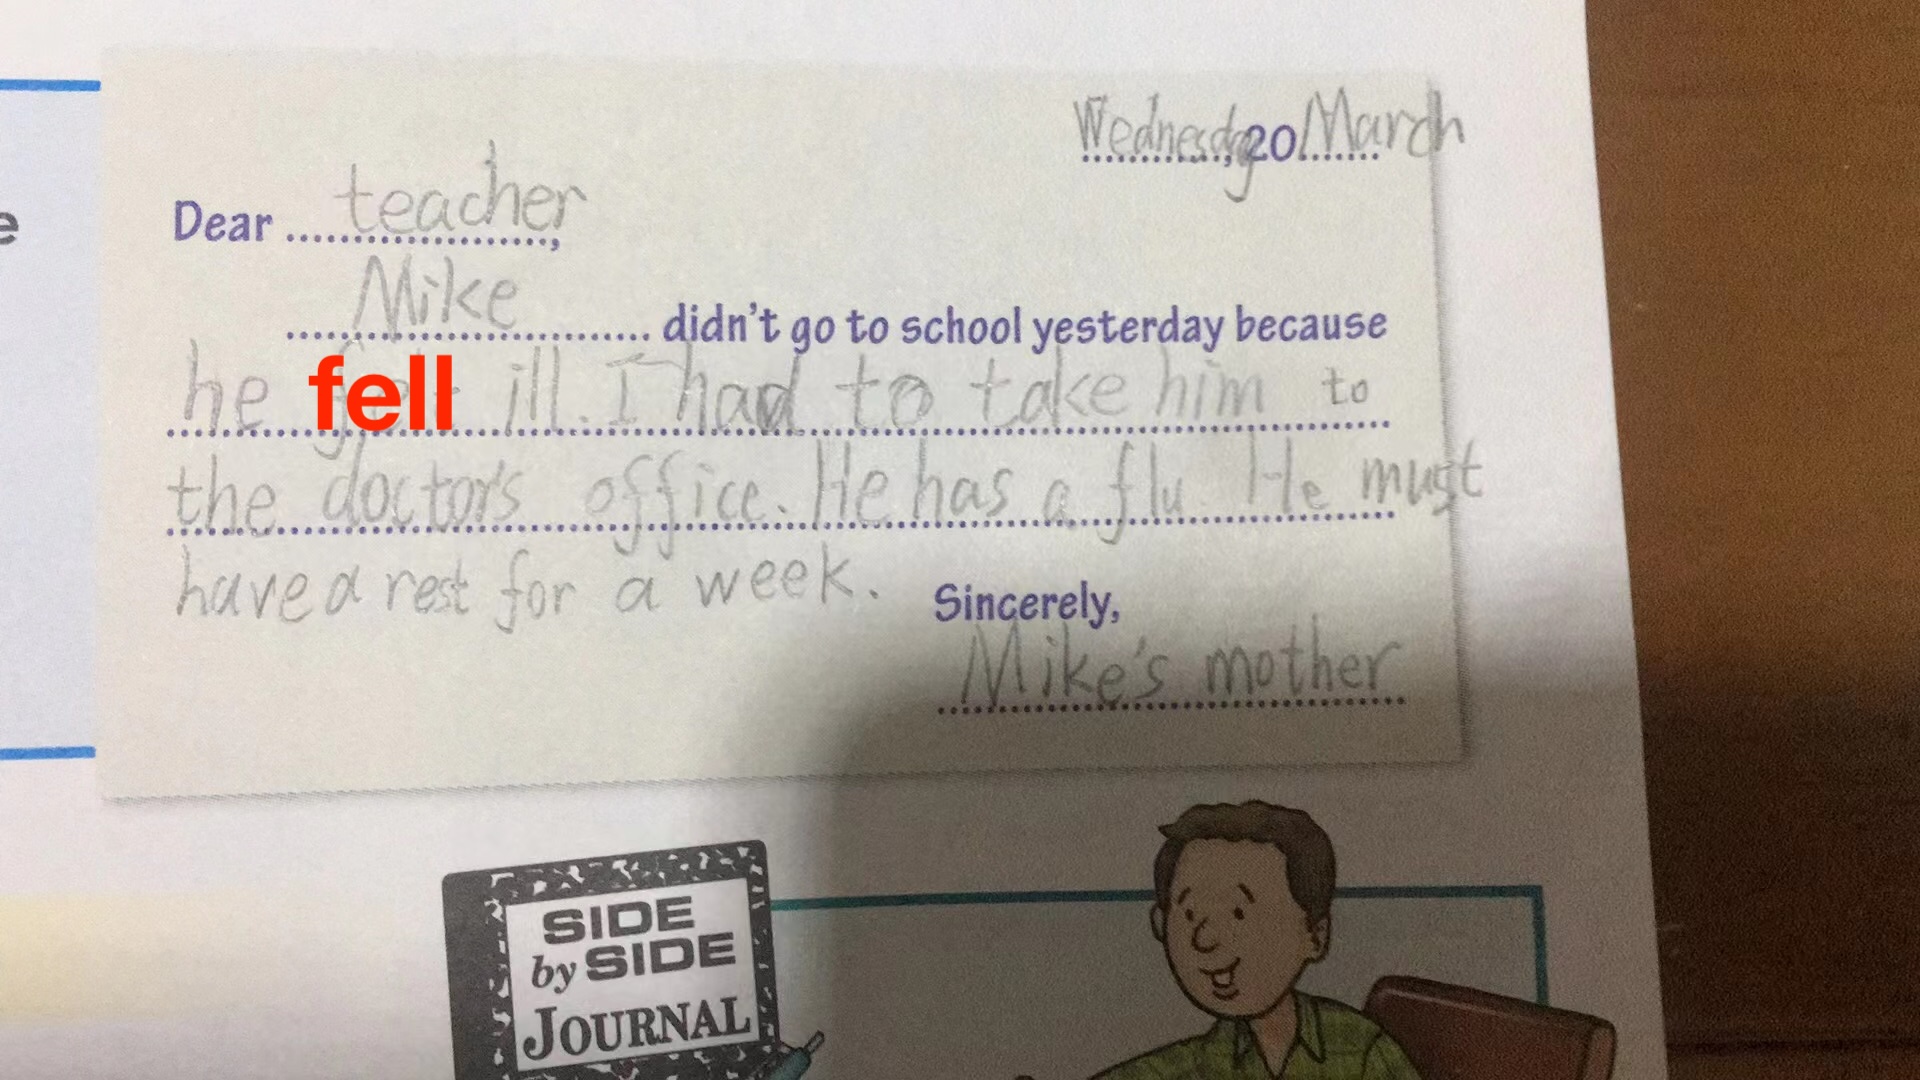 Wednesday, 20 March
Dear teacher,
Mike didn't go to school yesterday because
he fell ill. I had to take him to
the doctor's office. He has a flu. He must
have a rest for a week.
Sincerely,
Mike's mother
e
SIDE
by SIDE
JOURNAL